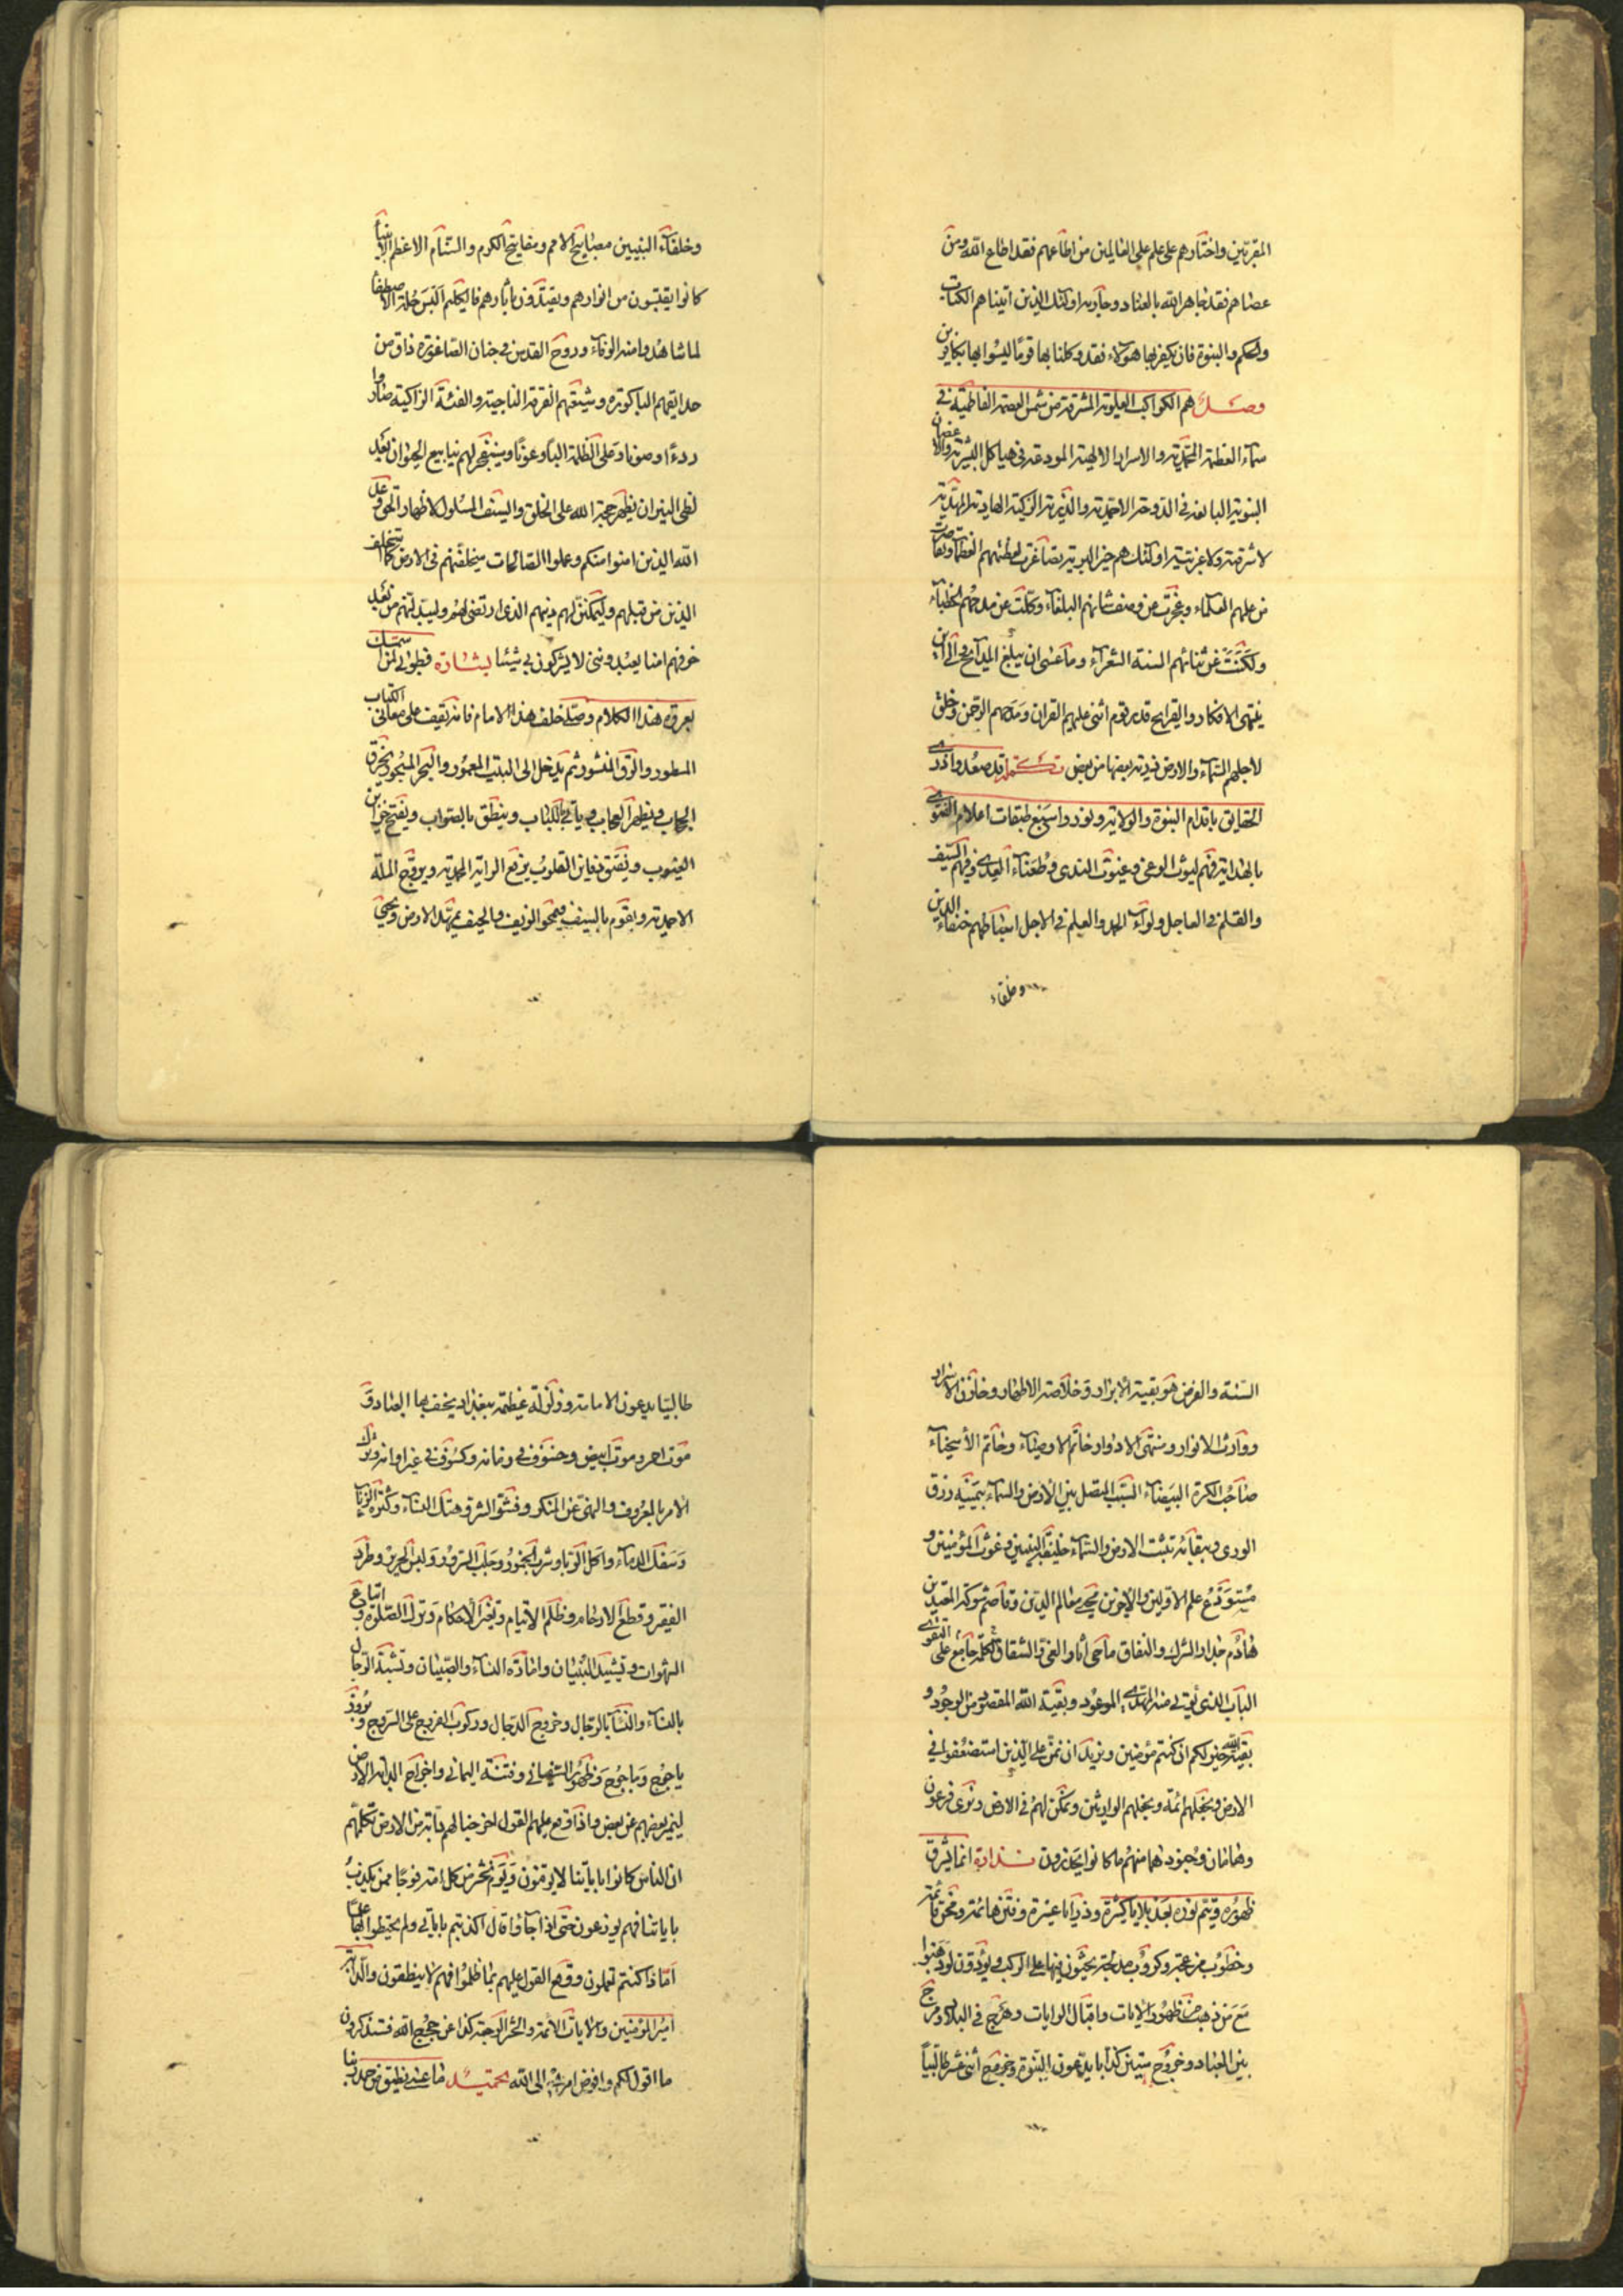 المقربين واختارهم على علم على العالمين من اطاعهم فقد اطاع الله ومن
عصاهم فقد جاهر الله بالعناد وحاربه اولئك الذين اتيناهم الكتاب
والحكم والنبوة فان يكفر بها هؤلاء فقد وكلنا بها قوما ليسوا بها بكافرين
وصل هم الكواكب العلوية المشرقة من شمس العصمة الفاطمية في
سماء العظمة المحمدية والاسرار الالهية المودعة في هياكل البشرية والاغصان
النبوية البالغة في الدوحة الاحمدية والذرية الزكية الهادية المهدية
لا شرقية ولا غربية اولئك هم خير البرية تصاغرت لعظمتهم العظماء وتقاصرت
عن علمهم العلماء وعجزت عن وصف شانهم البلغاء وكلت عن مدحهم الخطباء
ولكنت عن ثنائهم السنة الشعراء وما عسى ان يبلغ المدايح والى اين
ينتهى الافكار والقرايح قدر قوم اثنى عليهم القران ومدحهم الرحمن وخلق
لاجلهم السماء والارض ذرية بعضها من بعض تكملة قد صعدوا ذرى
الحقايق باقدام النبوة والولاية ونوروا سبع طبقات اعلام الفتوى
بالهداية فهم ليوث الوغى وغيوث الندى وطعناء العدى وفيهم السيف
والقلم في العاجل ولواء الحمد والعلم في الاجل اسباطهم خلفاء الدين
وخلفاء
وخلفاء النبيين مصابيح الامم ومفاتيح الكرم والسنام الاعظم الانبياء
كانوا يقتبسون من انوارهم ويقتدون باثارهم فالكليم البس حلة الاصطفاء
لما شاهدوا منه الوفاء وروح القدس في جنان الصاغورة ذاق من
حدايقهم الباكورة وشيعتهم الفرقة الناجية والفئة الزاكية صاروا
ردءا وصونا وعلى الظلمة البا وعونا وسينفجر لهم ينابيع الحيوان بعد
لظى النيران بظهر حجة الله على الخلق والسيف المسلول لاظهار الحق وعد
الله الذين امنوا منكم وعملوا الصالحات ليستخلفنهم في الارض كما استخلف
الذين من قبلهم وليمكنن لهم دينهم الذى ارتضى لهم وليبدلنهم من بعد
خوفهم امنا يعبدوننى لا يشركون بى شيئا بشارة فطوبى لمن استمسك
بعروة هذا الكلام وصلى خلف هذا الامام فانه يقف على معانى الكتاب
المسطور والرق المنشور ثم يدخل الى البيت المعمور والبحر المسجور يخرق
الحجاب ويظهر العجاب وياتى بالكتاب وينطق بالصواب ويفتح خزاين
الغيوب ويفتق دفاين القلوب يرفع الراية المحمدية ويروج الملة
الاحمدية ويقوم بالسيف فيمحو الزيف والحيف يمهد الارض ويحيى
السنة والفرض هو بقية الابرار وخلاصة الاطهار وخازن الاسرار
ووارث الانوار ومنتهى الادوار خاتم الاوصياء وخاتم الاسخياء
صاحب الكرة البيضاء السبب المتصل بين الارض والسماء بيمنه رزق
الورى وببقائه ثبتت الارض والسماء خليفة النبيين وغوث المؤمنين و
مستودع علم الاولين والاخرين محيى معالم الدين وقاصم شوكة المعتدين
هادم جدار الشرك والنفاق ماحى اثار الغى والشقاق الكلمة جامع على التقوى
الباب الذى يؤتى منه المهدى الموعود وبقية الله المقصود من الوجود و
بقية الله خير لكم ان كنتم مؤمنين ونريد ان نمن على الذين استضعفوا في
الارض ونجعلهم ائمة ونجعلهم الوارثين ونمكن لهم في الارض ونرى فرعون
وهامان وجنودهما منهم ما كانوا يحذرون نذارة انما يشرق
ظهوره ويتم نوره بعد بلايا كثيرة ورزايا عسيرة وفتن هائمة ومحن قائمة
وخطوب مزعجة وكروب مدلجة يجثون فيها على الركب ويؤدون لو ذهبوا
مع من ذهب منه ظهور الايات واقبال الرايات وهرج في البلاد ومرج
بين العباد وخروج ستين كذابا يدعون النبوة وخروج اثنى عشر طالبيا
طالبيا يدعون الامامة وزلزلة عظيمة ببغداد يخسف بها العباد و
موت احمر وموت ابيض وخسوف في زمانه وكسوف في غير اوانه وترك
الامر بالمعروف والنهى عن المنكر وفشو الشر وهتك النساء وكثرة الزنا
وسفك الدماء واكل الربا وشرب الخمور وجلب الشرور ولبس الحرير وطرد
الفقير وقطع الارحام وظلم الايتام وتغير الاحكام وترك الصلوة واتباع
الشهوات وتشييد البنيان وامارة النساء والصبيان وتشبه الرجال
بالنساء والنساء بالرجال وخروج الدجال وركوب الفروج على السروج وبروز
ياجوج وماجوج وظهور السفيانى وفتنة اليمانى واخراج الدابة الارض
ليميز بعضهم عن بعض واذا وقع عليهم القول اخرجنا لهم دابة من الارض تكلمهم
ان الناس كانوا باياتنا لا يوقنون ويوم نحشر من كل امة فوجا ممن يكذب
باياتنا فهم يوزعون حتى اذا جاؤا قال اكذبتم باياتى ولم تحيطوا بها علما
اماذا كنتم تعملون ووقع القول عليهم بما ظلموا فهم لا ينطقون والدابة
امير المؤمنين والايات الائمة والحشر الرجعة كذا عن حجج الله فستذكرون
ما اقول لكم وافوض امرى الى الله تحميد ما عند نطق من حمد ربنا